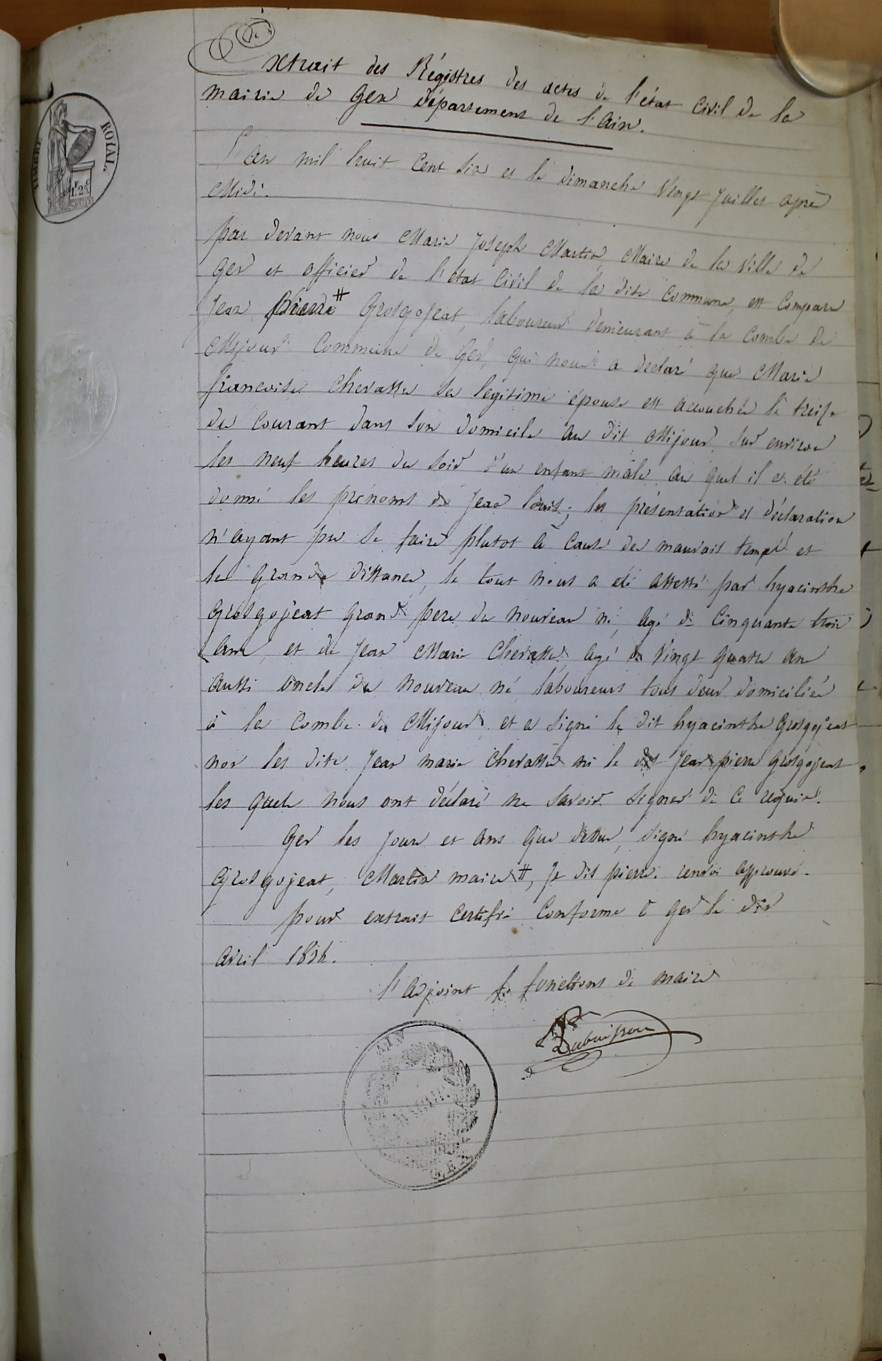 Extrait des Régistres des actes de l'état civil de la
mairie de Gex département de l'ain.
TIMBRE ROYAL
L'an mil huit cent six et le dimanche vingt juillet après
Midi.
par devant nous Marie Joseph Martin Maire de la ville de
Gex et officier de l'état civil de la dite commune, est comparu
Jean Pierre # Grosgojeat, laboureur demeurant à la Combe de
Mijoux Commune de Gex, qui nous a déclaré que Marie
françoise Chevassu sa légitime épouse est accouchée le treize
du courant dans son domicile au dit Mijoux sur environ
les neuf heures du soir d'un enfant male au quel il a été
donné les prénoms de Jean louis; la présentation et déclaration
n'ayant pu se faire plutot à cause du mauvais temps et
la Grande distance, le tout nous a été attesté par hyacinthe
Grosgojeat Grand pere du nouveau né, agé de Cinquante trois
ans, et de Jean Marie Chevassu, agé de vingt quatre ans
aussi oncle du nouveau né laboureurs tous deux domiciliés
à la Combe de Mijoux et a signé le dit hyacinthe Grosgojeat
non les dits Jean marie Chevassu ni le dit Jean pierre grosgojeat
les quels nous ont déclaré ne savoir signer de ce requis.
Gex les jour et ans que dessus, signé hyacinthe
Grosgojeat, Martin maire #, Je dis pierre renvoi approuvé.
pour extrait certifié conforme à gex le dix
avril 1836.
l'adjoint fs. fonctions de maire
AIN
MAIRIE
GEX